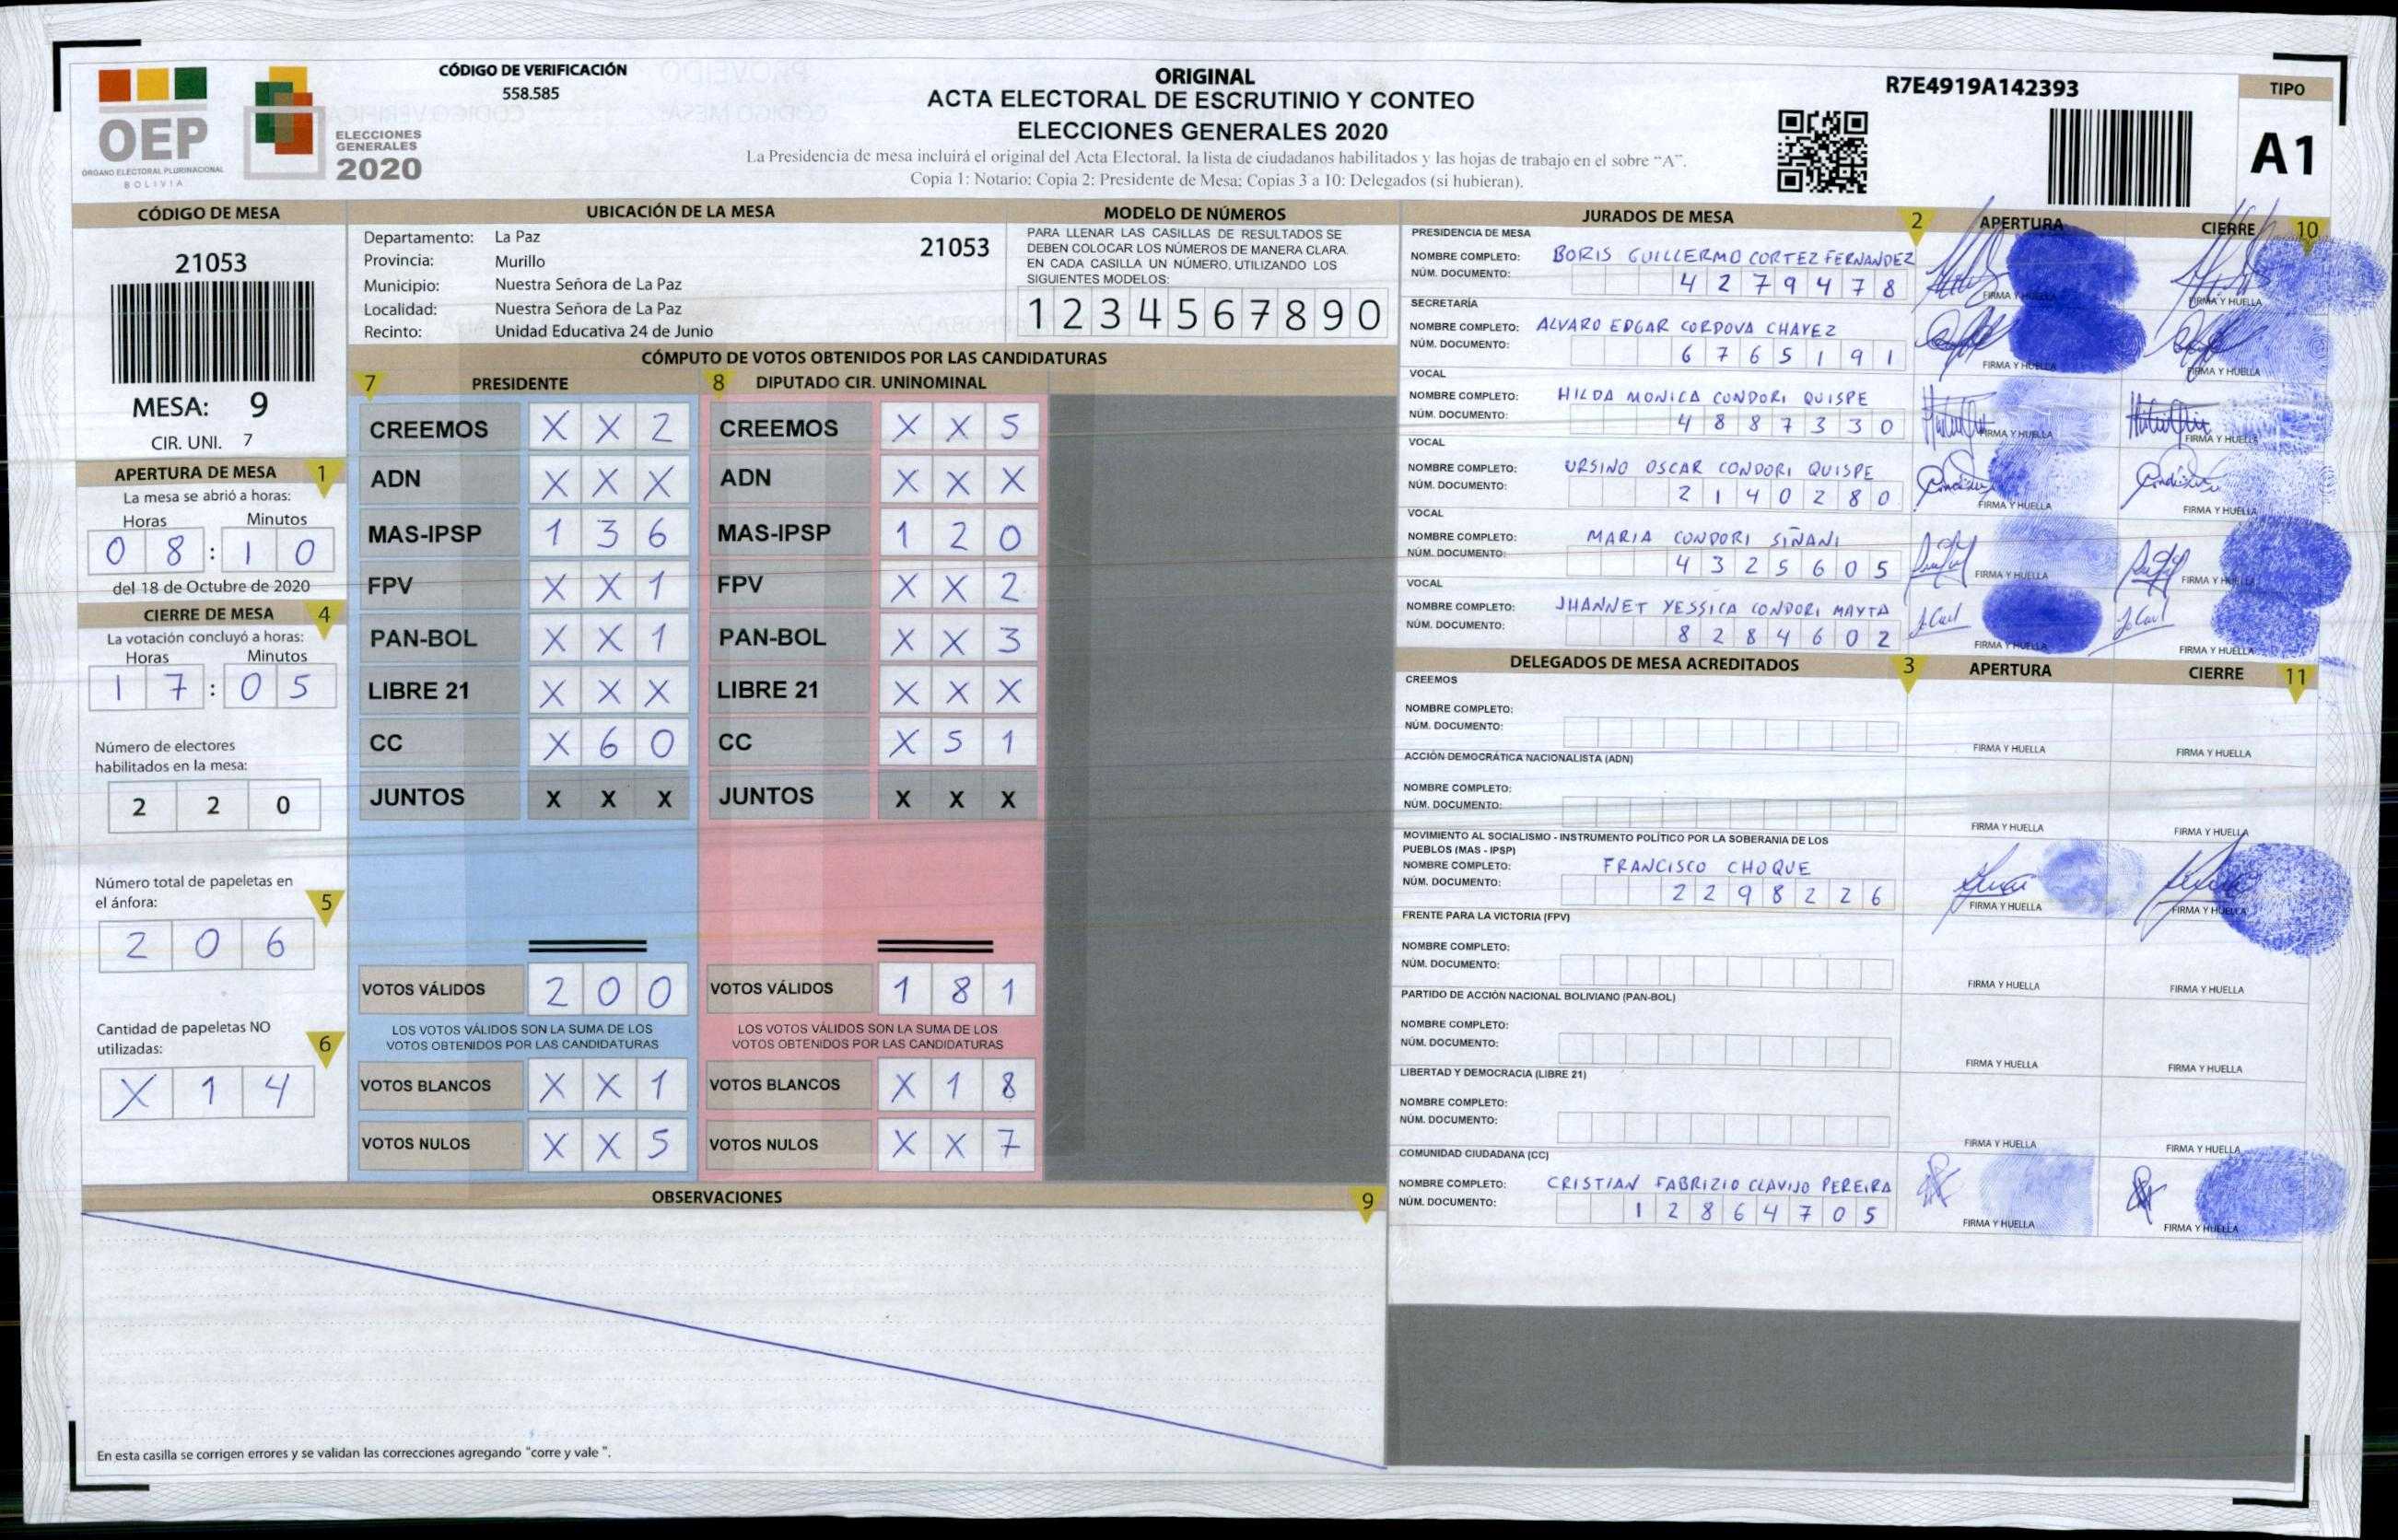 OEP
ÓRGANO ELECTORAL PLURINACIONAL
BOLIVIA
ELECCIONES
GENERALES
2020
CÓDIGO DE VERIFICACIÓN
558.585
ORIGINAL
ACTA ELECTORAL DE ESCRUTINIO Y CONTEO
ELECCIONES GENERALES 2020
La Presidencia de mesa incluirá el original del Acta Electoral, la lista de ciudadanos habilitados y las hojas de trabajo en el sobre “A”.
Copia 1: Notario; Copia 2: Presidente de Mesa; Copias 3 a 10: Delegados (si hubieran).
R7E4919A142393
TIPO
A1
CÓDIGO DE MESA
21053
MESA: 9
CIR. UNI. 7
APERTURA DE MESA 1
La mesa se abrió a horas:
Horas Minutos
0 8 : 1 0
del 18 de Octubre de 2020
CIERRE DE MESA 4
La votación concluyó a horas:
Horas Minutos
1 7 : 0 5
Número de electores
habilitados en la mesa:
2 2 0
Número total de papeletas en
el ánfora: 5
2 0 6
Cantidad de papeletas NO
utilizadas: 6
X 1 4
UBICACIÓN DE LA MESA
Departamento: La Paz 21053
Provincia: Murillo
Municipio: Nuestra Señora de La Paz
Localidad: Nuestra Señora de La Paz
Recinto: Unidad Educativa 24 de Junio
MODELO DE NÚMEROS
PARA LLENAR LAS CASILLAS DE RESULTADOS SE
DEBEN COLOCAR LOS NÚMEROS DE MANERA CLARA.
EN CADA CASILLA UN NÚMERO, UTILIZANDO LOS
SIGUIENTES MODELOS:
1 2 3 4 5 6 7 8 9 0
CÓMPUTO DE VOTOS OBTENIDOS POR LAS CANDIDATURAS
7 PRESIDENTE 8 DIPUTADO CIR. UNINOMINAL
CREEMOS X X 2 CREEMOS X X 5
ADN X X X ADN X X X
MAS-IPSP 1 3 6 MAS-IPSP 1 2 0
FPV X X 1 FPV X X 2
PAN-BOL X X 1 PAN-BOL X X 3
LIBRE 21 X X X LIBRE 21 X X X
CC X 6 0 CC X 5 1
JUNTOS X X X JUNTOS X X X
VOTOS VÁLIDOS 2 0 0 VOTOS VÁLIDOS 1 8 1
LOS VOTOS VÁLIDOS SON LA SUMA DE LOS LOS VOTOS VÁLIDOS SON LA SUMA DE LOS
VOTOS OBTENIDOS POR LAS CANDIDATURAS VOTOS OBTENIDOS POR LAS CANDIDATURAS
VOTOS BLANCOS X X 1 VOTOS BLANCOS X 1 8
VOTOS NULOS X X 5 VOTOS NULOS X X 7
OBSERVACIONES 9
En esta casilla se corrigen errores y se validan las correcciones agregando "corre y vale ".
JURADOS DE MESA 2 APERTURA CIERRE 10
PRESIDENCIA DE MESA
NOMBRE COMPLETO: BORIS GUILLERMO CORTEZ FERNANDEZ
NÚM. DOCUMENTO: 4 2 7 9 4 7 8
FIRMA Y HUELLA FIRMA Y HUELLA
SECRETARÍA
NOMBRE COMPLETO: ALVARO EDGAR CORDOVA CHAVEZ
NÚM. DOCUMENTO: 6 7 6 5 1 9 1
FIRMA Y HUELLA FIRMA Y HUELLA
VOCAL
NOMBRE COMPLETO: HILDA MONICA CONDORI QUISPE
NÚM. DOCUMENTO: 4 8 8 7 3 3 0
FIRMA Y HUELLA FIRMA Y HUELLA
VOCAL
NOMBRE COMPLETO: URSINO OSCAR CONDORI QUISPE
NÚM. DOCUMENTO: 2 1 4 0 2 8 0
FIRMA Y HUELLA FIRMA Y HUELLA
VOCAL
NOMBRE COMPLETO: MARIA CONDORI SIÑANI
NÚM. DOCUMENTO: 4 3 2 5 6 0 5
FIRMA Y HUELLA FIRMA Y HUELLA
VOCAL
NOMBRE COMPLETO: JHANNET YESSICA CONDORI MAYTA
NÚM. DOCUMENTO: 8 2 8 4 6 0 2
FIRMA Y HUELLA FIRMA Y HUELLA
DELEGADOS DE MESA ACREDITADOS 3 APERTURA CIERRE 11
CREEMOS
NOMBRE COMPLETO:
NÚM. DOCUMENTO:
FIRMA Y HUELLA FIRMA Y HUELLA
ACCIÓN DEMOCRÁTICA NACIONALISTA (ADN)
NOMBRE COMPLETO:
NÚM. DOCUMENTO:
FIRMA Y HUELLA FIRMA Y HUELLA
MOVIMIENTO AL SOCIALISMO - INSTRUMENTO POLÍTICO POR LA SOBERANIA DE LOS
PUEBLOS (MAS - IPSP)
NOMBRE COMPLETO: FRANCISCO CHOQUE
NÚM. DOCUMENTO: 2 2 9 8 2 2 6
FIRMA Y HUELLA FIRMA Y HUELLA
FRENTE PARA LA VICTORIA (FPV)
NOMBRE COMPLETO:
NÚM. DOCUMENTO:
FIRMA Y HUELLA FIRMA Y HUELLA
PARTIDO DE ACCIÓN NACIONAL BOLIVIANO (PAN-BOL)
NOMBRE COMPLETO:
NÚM. DOCUMENTO:
FIRMA Y HUELLA FIRMA Y HUELLA
LIBERTAD Y DEMOCRACIA (LIBRE 21)
NOMBRE COMPLETO:
NÚM. DOCUMENTO:
FIRMA Y HUELLA FIRMA Y HUELLA
COMUNIDAD CIUDADANA (CC)
NOMBRE COMPLETO: CRISTIAN FABRIZIO CLAVIJO PEREIRA
NÚM. DOCUMENTO: 1 2 8 6 4 7 0 5
FIRMA Y HUELLA FIRMA Y HUELLA